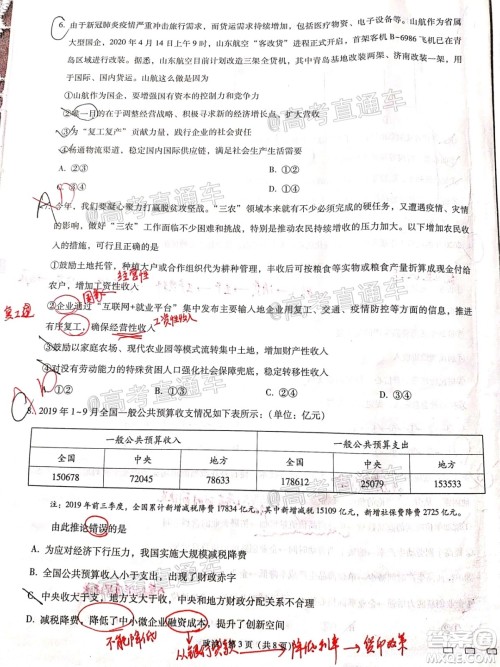 6. 由于新冠肺炎疫情严重冲击旅行需求，而货运需求持续增加，包括医疗物资、电子设备等。山航作为省属
大型国企，2020 年 4 月 14 日上午 9 时，山东航空“客改货”进程正式开启。首架客机 B-6986 飞机已在青
岛区域进行改装。据悉，山东航空目前计划改造三架全货机，其中青岛基地改装两架、济南改装一架，用
于国际、国内货运。山航这么做是因为
①山航作为国企，要增强国有资本的控制力和竞争力
②唯一目的在于调整经营战略、积极寻求新的经济增长点，扩大营收
③为“复工复产”贡献力量，践行企业的社会责任
④畅通物流渠道，稳定国内国际供应链，满足社会生产生活需要
A. ②③
C. ③④
A
7. 今年，我们要凝心聚力打赢脱贫攻坚战。“三农”领域本来就有不少必须完成的硬任务，又遭遇疫情、灾情
的影响，做好“三农”工作面临不少困难和挑战，特别是推动农民持续增收的压力加大。以下增加农民收
入的措施，可行且正确的是
①鼓励土地托管，种植大户或合作组织代为耕种管理，丰收后可按粮食等实物或粮食产量折算成现金付给
农户，增加工资性收入
经营性
国家
②企业通过“互联网+就业平台”集中发布主要输入地企业用复工、交通、疫情防控等方面的信息，推进
有序复工，确保经营性收入
工资性收入
③鼓励以家庭农场、现代农业园等模式流转集中土地，增加财产性收入
④对没有劳动能力的特殊贫困人口强化社会保障兜底，稳定转移性收入
A. ①②
B. ①③
C. ②④
D. ③④
8. 2019 年 1－9 月全国一般公共预算收支情况如下表所示：（单位：亿元）
一般公共预算收入 一般公共预算支出
全国 中央 地方 全国 中央 地方
150678 72045 78633 178612 25079 153533
注：2019 年前三季度，全国累计新增减税降费 17834 亿元。其中新增减税 15109 亿元，新增社保费降费 2725 亿元。
由此推论错误的是
A. 为应对经济下行压力，我国实施大规模减税降费
B. 全国公共预算收入小于支出，出现了财政赤字
C. 中央收大于支，地方支大于收，中央和地方财政分配关系不合理
D. 减税降费，降低了中小微企业融资成本，提升了创新空间
政治 第 3 页（共 8 页）
降低利率→货币政策
@高考直通车